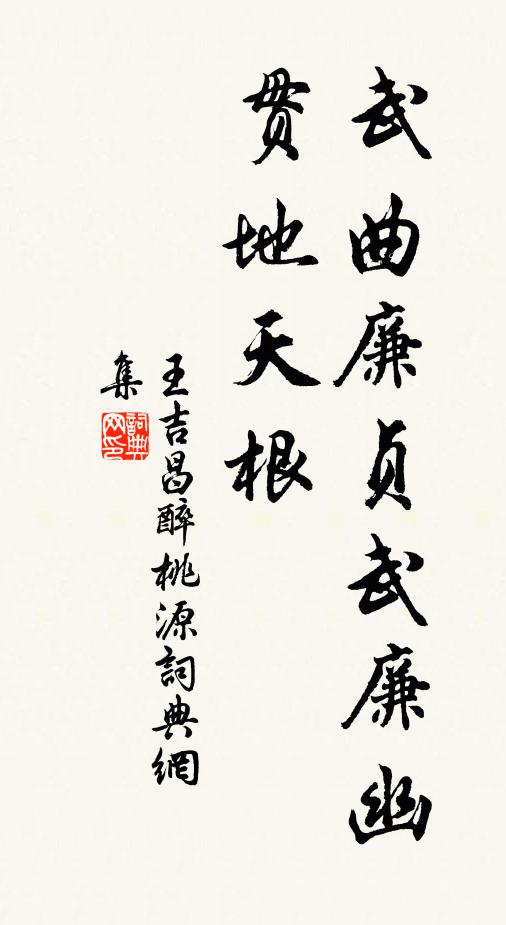 武曲廉貞武廉幽
贯地天根
王吉昌醉桃源詞典網
集
詞典网印